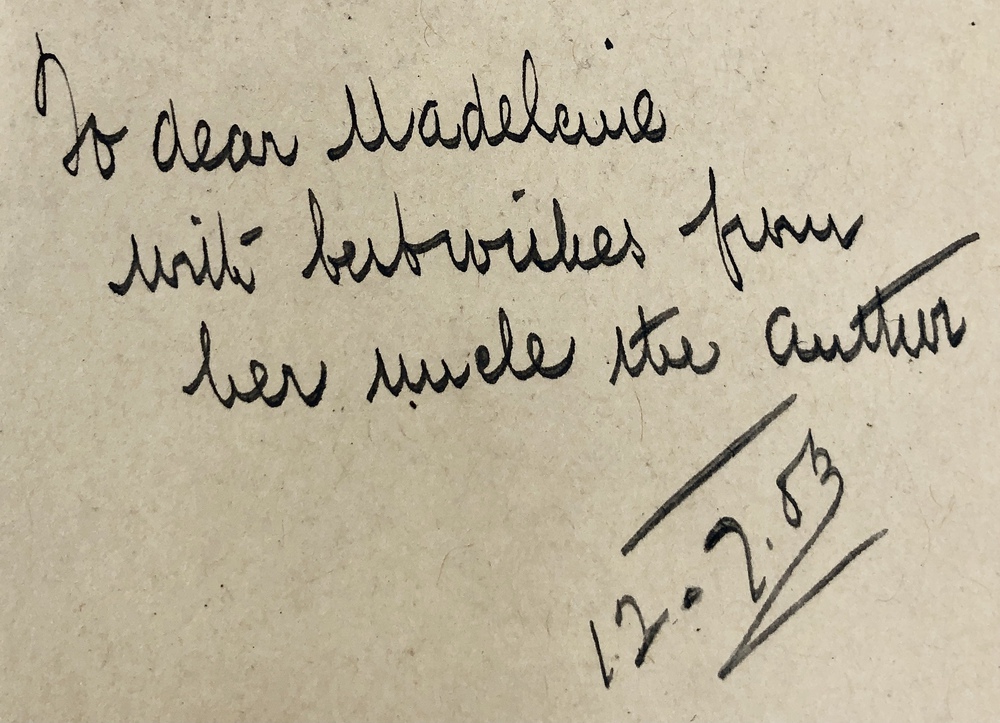 To dear Madeleine
with best wishes from
her uncle the author
12.2.53